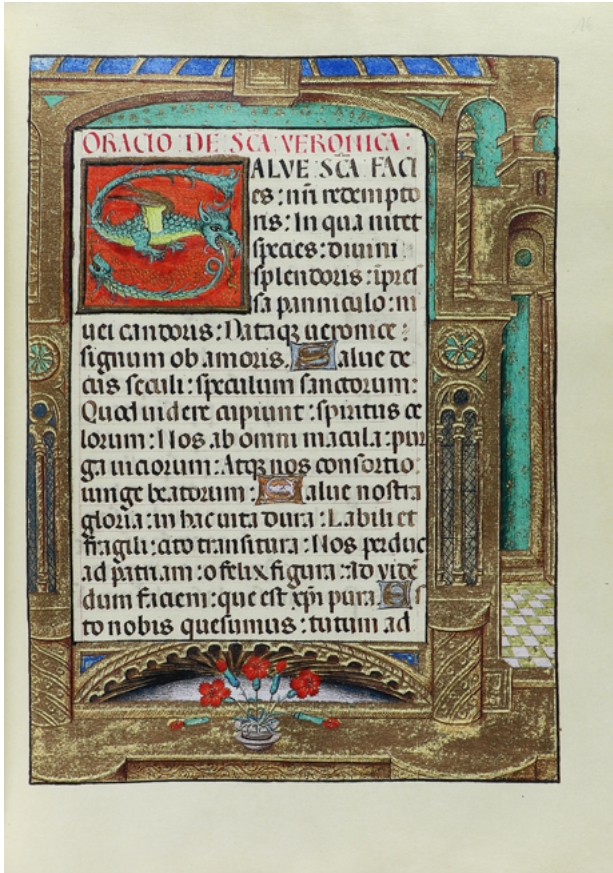 ORACIO DE SCA VERONICA:
SALVE SCA FACI
es: nr̄i redempto
ris: In qua nitet
species: diuini
splendoris: īpres
sa panniculo: ni
uei candoris: Dataq₃ ueronice:
signum ob amoris. Salue de
cus seculi: speculum sanctorum:
Quod uidere cupiunt: spiritus ce
lorum: Nos ab omni macula: pur
ga uiciorum: Atq₃ nos consortio:
iunge beatorum: Salue nostra
gloria: in hac uita dura: Labili et
fragili: cito transitura: Nos perduc
ad patriam: o felix figura: ad vidē
dum faciem: que est xp̄i pura. Es
to nobis quesumus: tutum ad